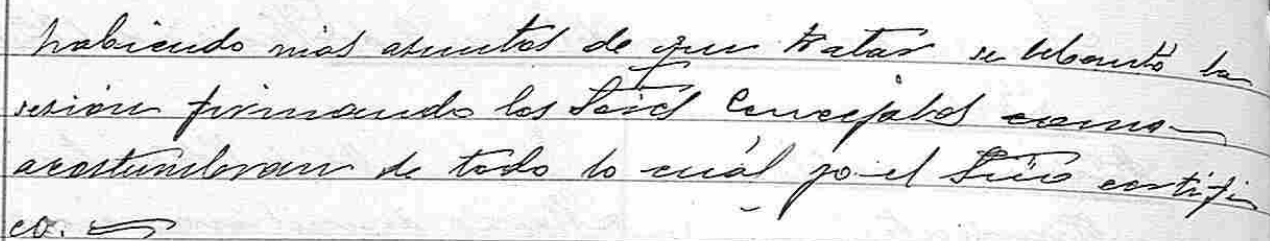 habiendo mas asuntos de que tratar se lebantó la
sesion firmando los Sres Concejales como
acostumbran de todo lo cuál yo el Srio certifi
co.